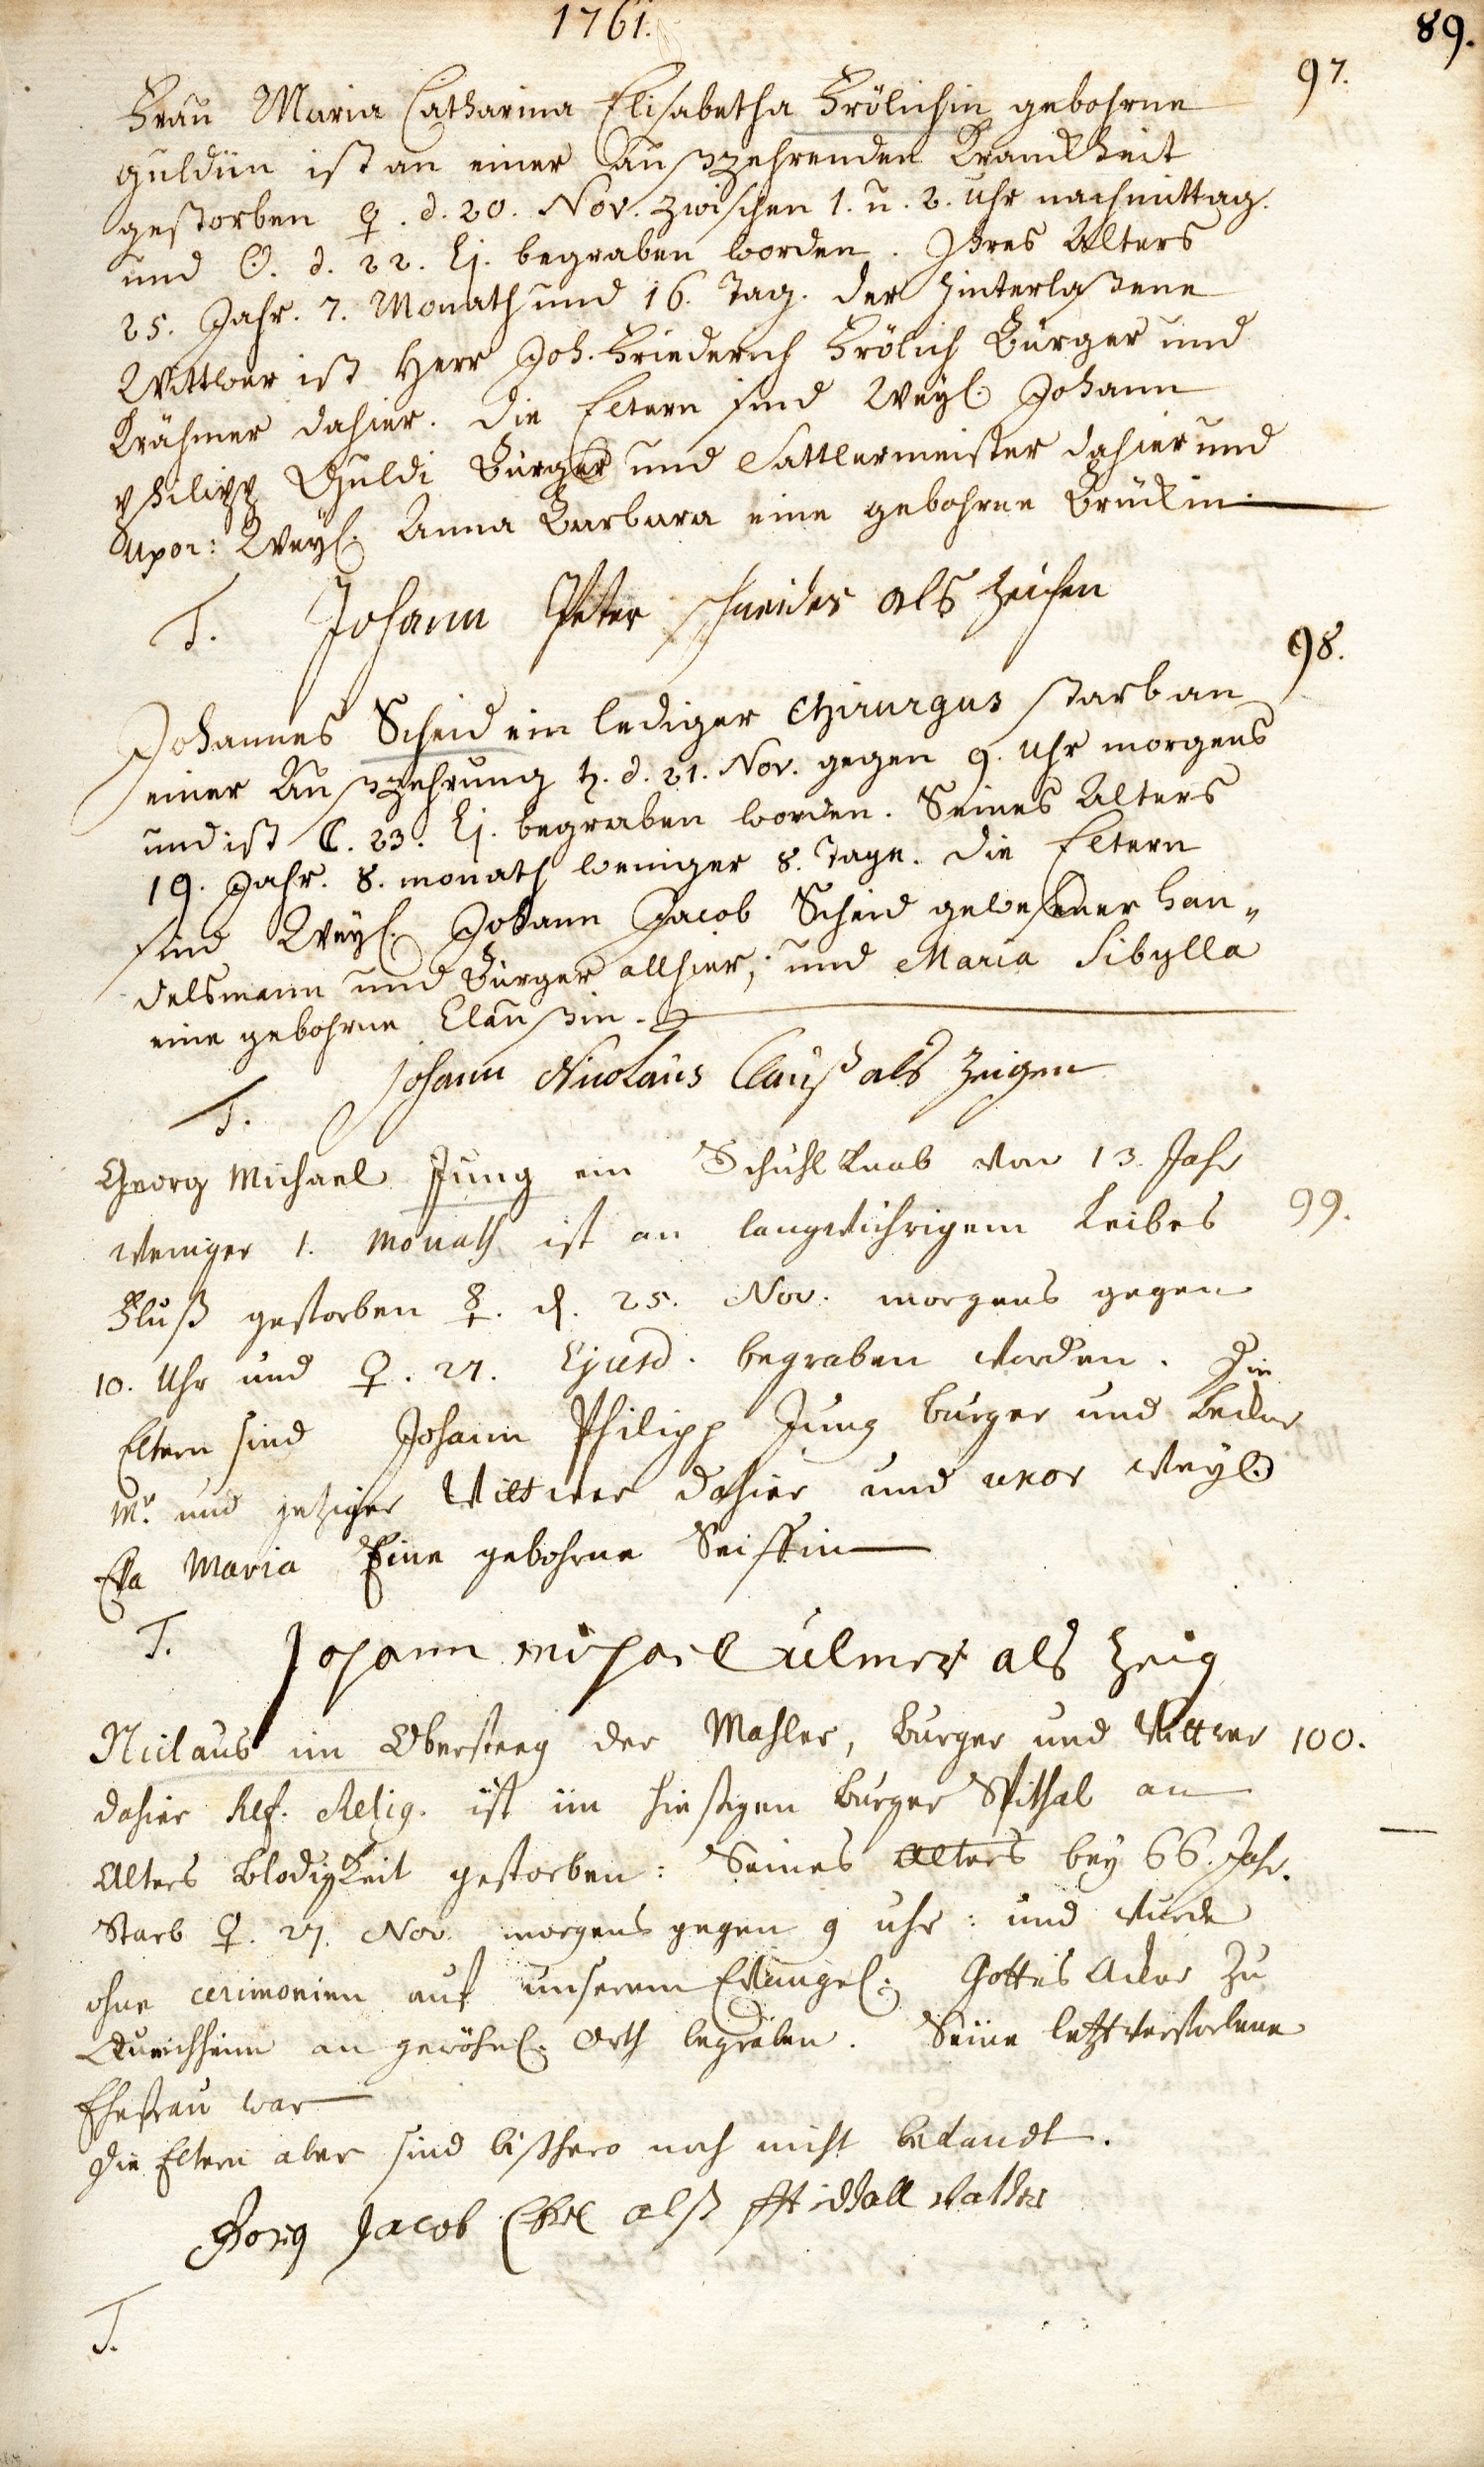 1761.
89.
97.
Frau Maria Catharina Elisabetha Frölichin gebohrne
Guldiin ist an einer Außzehrenden Kranckheit
gestorben ♀. d. 20. Nov. zwischen 1. u. 2. Uhr nachmittag.
und ☉. d. 22. Ej. begraben worden. Ihres Alters
25. Jahr. 7. Monath und 16. Tag. der hinterlaßene
Wittwer ist Herr Joh. Friederich Frölich Burger und
Krähmer dahier. die Eltern sind Weyl. Johann
philipp Guldi Burger und Sattlermeister dahier und
Uxor: Weyl. Anna Barbara eine gebohrne Brückin.
T. Johann Peter schneider als zeichen
98.
Johannes Scheid ein lediger Chirurgus starb an
einer Außzehrung ♄. d. 21. Nov. gegen 9. Uhr morgens
und ist ☾. 23. Ej. begraben worden. Seines Alters
19. Jahr. 8. monath weniger 8. Tage. die Eltern
sind Weyl. Johann Jacob Scheid gewesener han„
delsmann und Burger allhier, und Maria Sibylla
eine gebohrne Claußin.
T. Johann Nicolaus Clauß als zeigen
Georg Michael Jung ein Schuhl Knab von 13. Jahr
99.
weniger 1. Monath ist an langwihrigem Leibes
Fluß gestorben ☿. d. 25. Nov. morgens gegen
10. Uhr und ♀. 27. Ejusd. begraben worden. Die
Eltern sind Johann Philipp Jung burger und Becker
Mr. und jetziger Wittwer dahier und uxor Weyl.
Eva Maria Eine gebohrne Seiffin
T. Johann michael ulmer als zeig
100.
Niclaus im Obersteeg der Mahler, Burger und Wittwer
dahier Ref. Relig. ist im hiesigen Burger Spithal an
Alters Blodigkeit gestorben: Seines Alters bey 66. Jahr.
Starb ♀. 27. Nov. morgens gegen 9 uhr: und wurde
ohne cerimonien auf unserem Evangel. Gottes Acker zu
Queichheim an gewöhnl. Orth begraben. Seine letztverstorbene
Ehefrau war
Die Eltern aber sind bißhero noch nicht bekandt.
Jacob alß
T.